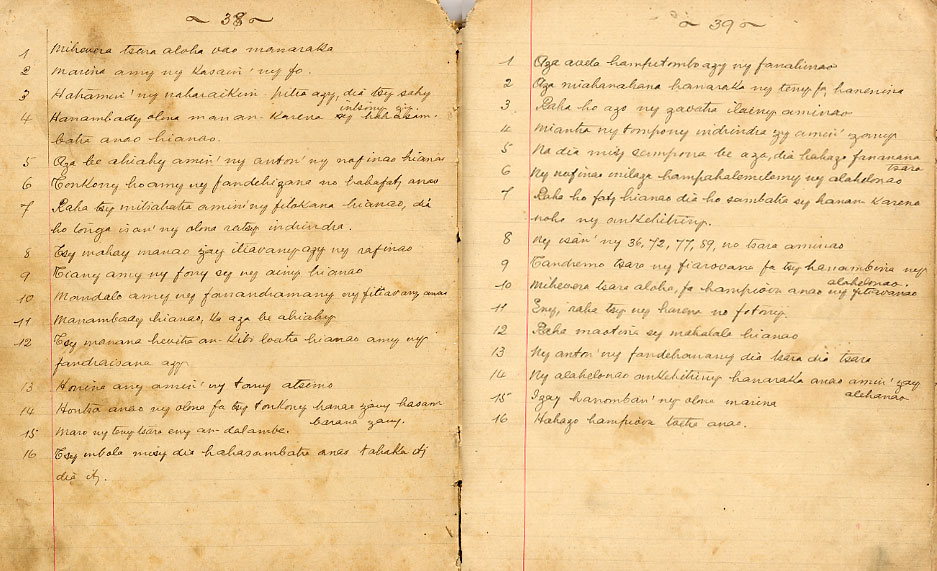 ~ 38 ~
1 Mihevera tsara aloha vao manaraka
2 Marina amy ny kasain' ny fo.
3 ny fitia azy, dia tsy sahy
intsony izy.
4 Hanambady olona manan-karena sy hahasam-
batra anao hianao.
5 Aza be ahiahy amin' ny anton' ny rafinao hianao
6 Tonkony ho amy ny fandehizana no hahafaty anao
7 Raha tsy mitsabatra amin' ny filokana hianao, dia
ho tonga isan' ny olona ratsy indrindra.
8 Tsy mahay manao izay itiavany azy ny rafinao
9 Tiany amy ny fony sy ny ainy hianao
10 Mandalo amy ny fanandramany ny fitiavany anao
11 Manambady hianao, ka aza be ahiahy
12 Tsy manana hevitra an-kibo loatra hianao amy ny
fandraisana azy
13 Honina any amin' ny tany atsimo
14 Hontsa anao ny olona fa tsy tonkony hanao izany hasam
barana izany.
15 Maro ny teny tsara eny an-dalambe.
16 Tsy mbola misy dia hahasambatra anao tahaka itỳ
dia itỳ.
~ 39 ~
1 Aza avela hampitombo azy ny fanahinao
2 Aza miahanahana hanaraka ny teny fa hanenina
3 Raha ho azo ny zavatra ilainy aminao
4 Miantra ny tompony indrindra izy amin' izany
5 Na dia misy sampona be aza, dia hahazo fananana
tsara
6 Ny rafinao milaza hampahalemilemy ny alahelonao
7 Raha ho faty hianao dia ho sambatra sy hanan-karena
noho ny ankehitriny.
8 Ny isan' ny 36, 72, 77, 89, no tsara aminao
9 Tandremo tsara ny fiarovana fa tsy hanambina ny
alahelonao.
10 Mihevera tsara aloha, fa hampiova anao ny fitiavanao
11 Eny, raha tsy ny harena no fotony.
12 Raha maotina sy mahalala hianao
13 Ny anton' ny fandehanany dia tsara dia tsara
14 Ny alahelonao ankehitriny hanaraka anao amin' izay
alehanao
15 Izay hanomban' ny olona marina
16 Hahazo hampiova toetra anao.